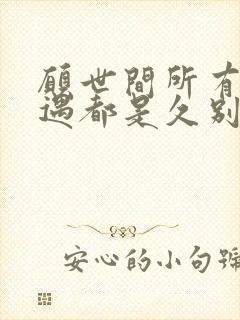 願世間所有
遇都是久别
安心的小句號